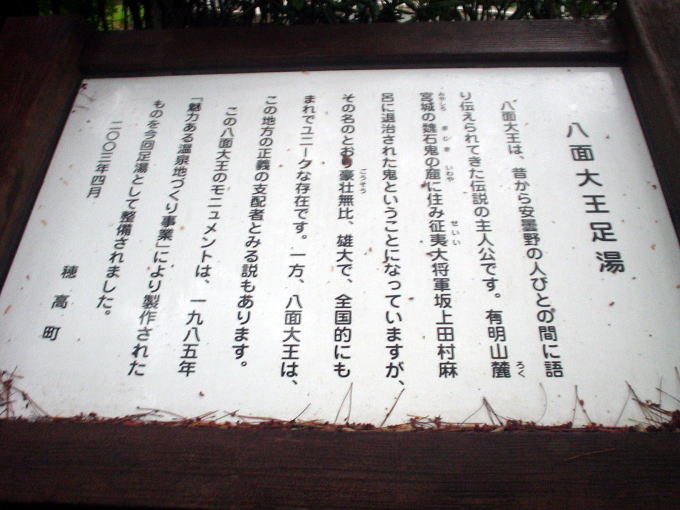 八面大王足湯
八面大王は、昔から安曇野の人びとの間に語
り伝えられてきた伝説の主人公です。有明山麓
宮城の魏石鬼の窟に住み征夷大将軍坂上田村麻
呂に退治された鬼ということになっていますが、
その名のとおり豪壮無比、雄大で、全国的にも
まれでユニークな存在です。一方、八面大王は、
この地方の正義の支配者とみる説もあります。
この八面大王のモニュメントは、一九八五年
「魅力ある温泉地づくり事業」により製作された
ものを今回足湯として整備されました。
二〇〇三年四月
穂高町